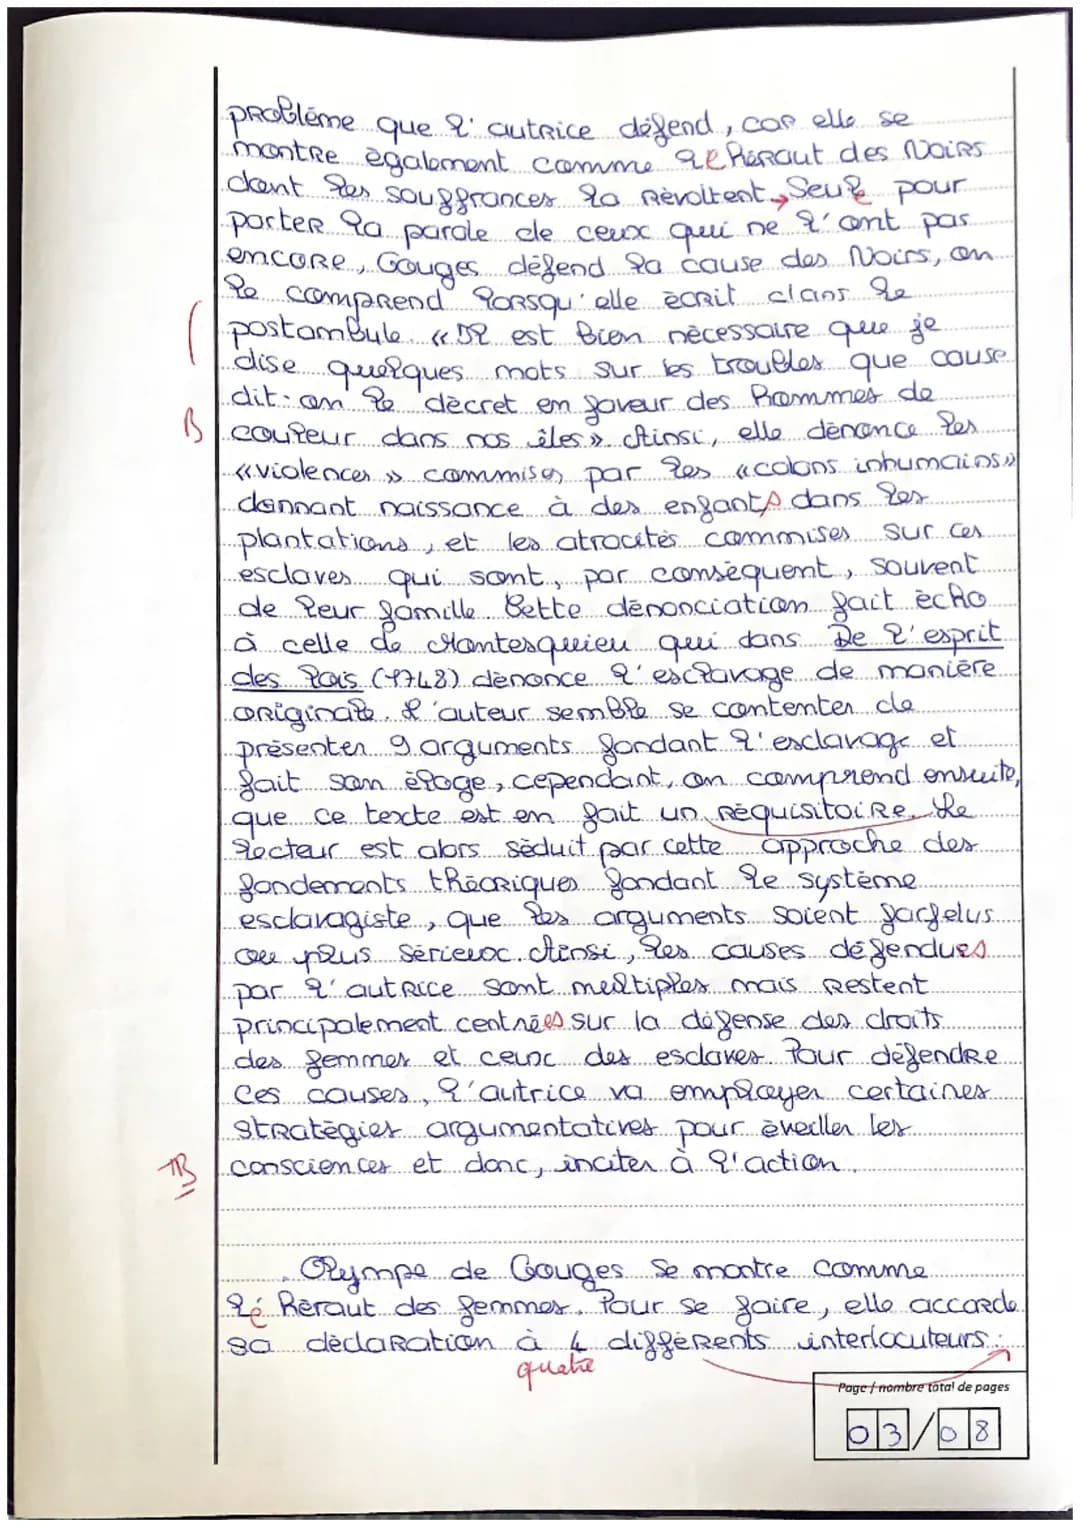 problème que l'autrice défend, car elle se
montre également comme le héraut des Noirs
dont les souffrances la révoltent. Seule pour
porter la parole de ceux qui ne l'ont pas
encore, Gouges défend la cause des Noirs, on
le comprend lorsqu'elle écrit dans le
postambule « Il est bien nécessaire que je
dise quelques mots sur les troubles que cause
dit-on le décret en faveur des hommes de
B couleur dans nos îles». Ainsi, elle dénonce les
«violences » commises par les «colons inhumains»
donnant naissance à des enfants dans les
plantations, et les atrocités commises sur ces
esclaves qui sont, par conséquent, souvent
de leur famille. Cette dénonciation fait écho
à celle de Montesquieu qui dans De l'esprit
des lois (1748) dénonce l'esclavage de manière
originale. L'auteur semble se contenter de
présenter 9 arguments fondant l'esclavage et
fait son éloge, cependant, on comprend ensuite,
que ce texte est en fait un réquisitoire. Le
lecteur est alors séduit par cette approche des
fondements théoriques fondant le système
esclavagiste, que les arguments soient farfelus
ou plus sérieux. Ainsi, les causes défendues
par l'autrice sont multiples mais restent
principalement centrées sur la défense des droits
des femmes et ceux des esclaves. Pour défendre
ces causes, l'autrice va employer certaines
stratégies argumentatives pour éveiller les
TB consciences et donc, inciter à l'action.
Olympe de Gouges se montre comme
le héraut des femmes. Pour se faire, elle accorde
sa déclaration à 4 différents interlocuteurs :
quatre
Page / nombre total de pages
03/08